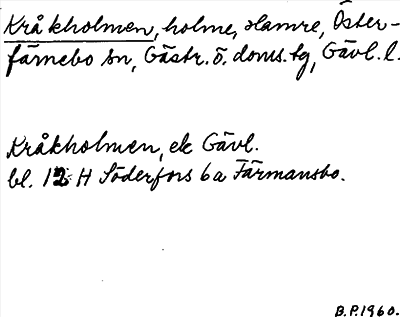 Kråkholmen, holme, Hamre, Öster-
färnebo sn, Gästr. ö. doms. tg, Gävl. l.
Kråkholmen, ek Gävl.
bl. 12 H Söderfors 6a Färmansbo.
B.P.1960.